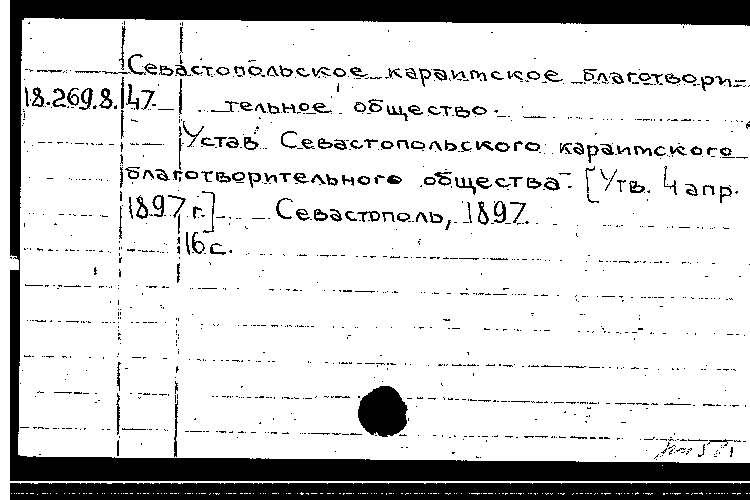 Севастопольское караимское благотвори-
18.269.8.47. тельное общество.
Устав Севастопольского караимского
благотворительного общества. [Утв. 4 апр.
1897 г.] Севастополь, 1897.
16 с.